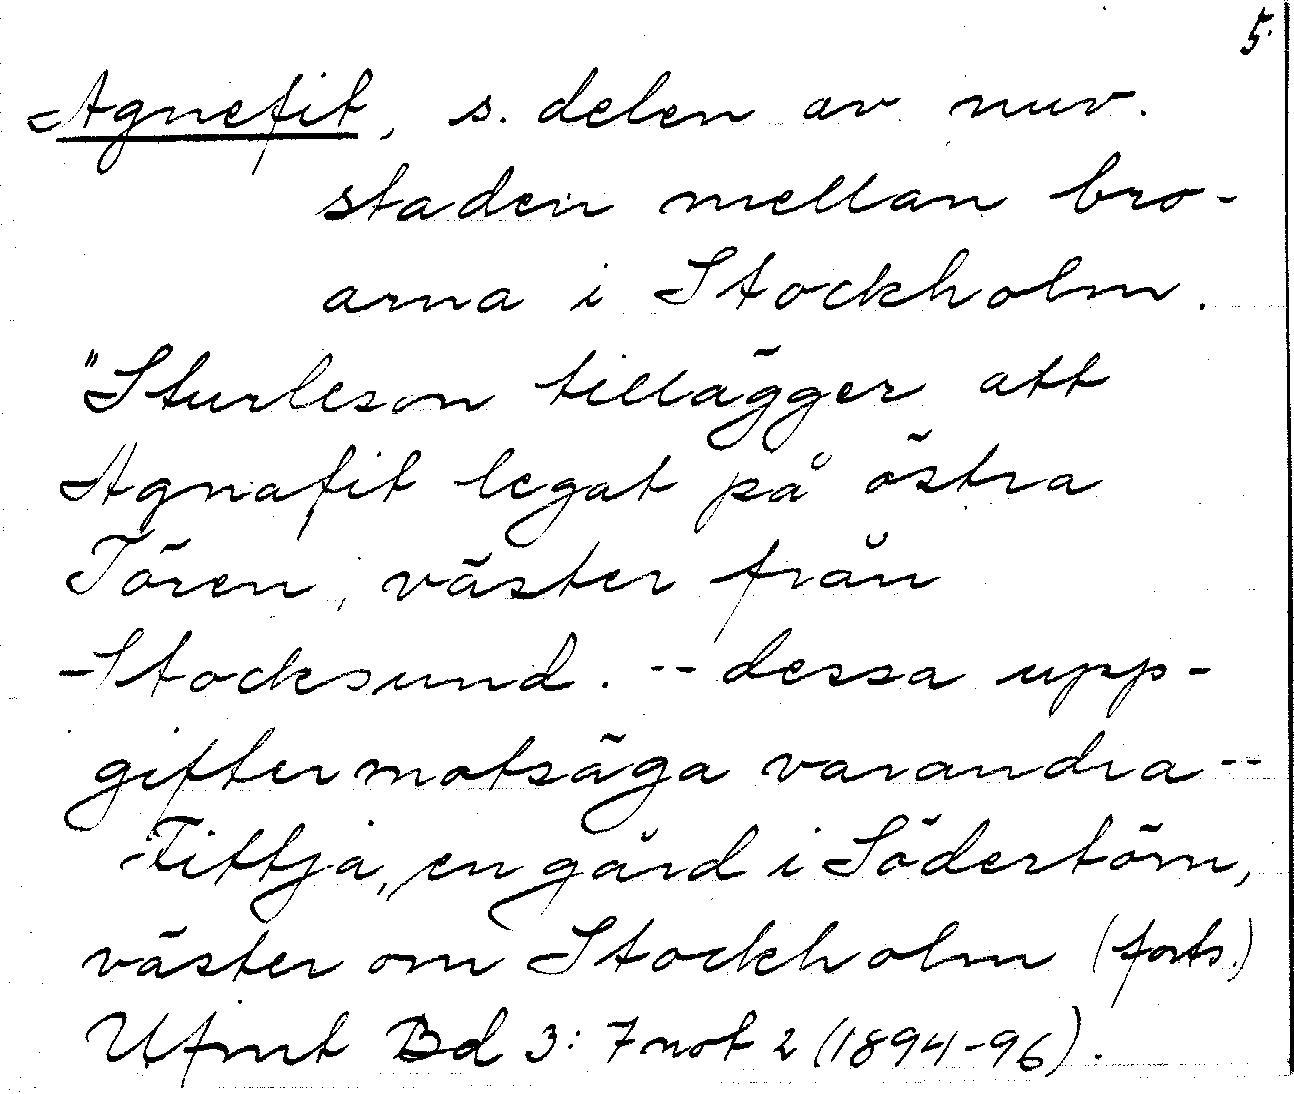 5.
Agnefit, s. delen av nuv.
staden mellan bro-
arna i Stockholm.
"Sturleson tillägger att
Agnafit legat på östra
Tören, väster från
Stocksund. -- dessa upp-
gifter motsäga varandra --
Fittja, en gård i Södertörn,
väster om Stockholm (forts.)
Ufmt Bd 3: 7 not 2 (1894-96).